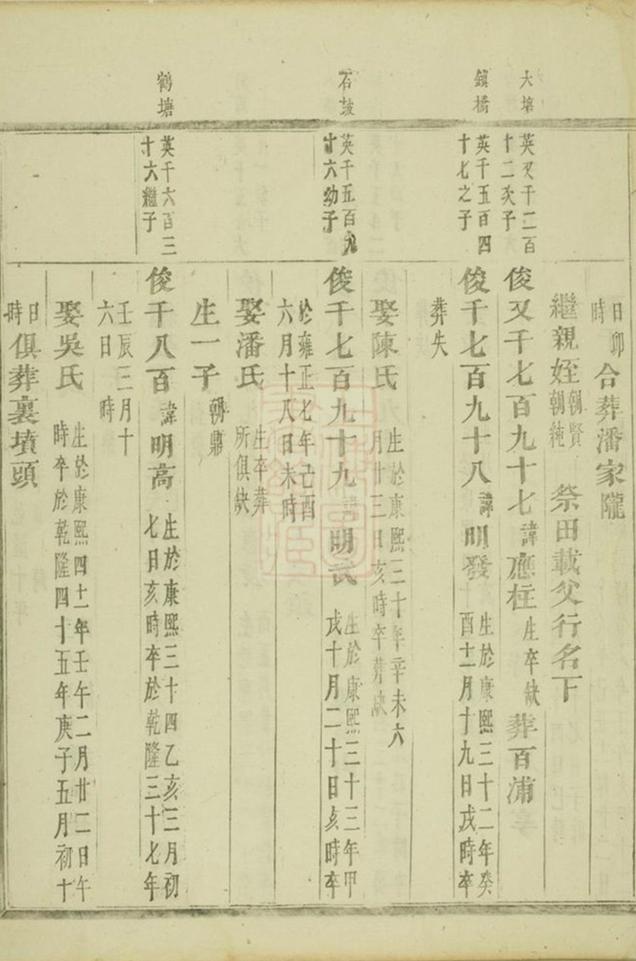 日卯時合葬潘家隴
繼親姪朝賢朝純祭田載父行名下
大墳
英又千二百十二次子
俊又千七百九十七諱應柱生卒缺葬百浦
鎮橋
英千五百四十七之子
俊千七百九十八諱明發生於康熙三十二年癸酉十一月十九日戌時卒
葬失
娶陳氏生於康熙三十年辛未六月十三日亥時卒葬缺
石鼓
英千五百九十六幼子
俊千七百九十九諱明 生於康熙三十三年甲戌十月二十日亥時卒
於雍正七年己酉六月十八日未時
娶潘氏生卒葬所俱缺
生一子朝鼎
鶴塘
英千六百三十六繼子
俊千八百諱明高生於康熙三十四乙亥三月初七日亥時卒於乾隆三十七年
壬辰三月十六日時
娶吳氏生於康熙四十一年壬午二月廿二日午時卒於乾隆四十五年庚子五月初十
日時俱葬裏墳頭